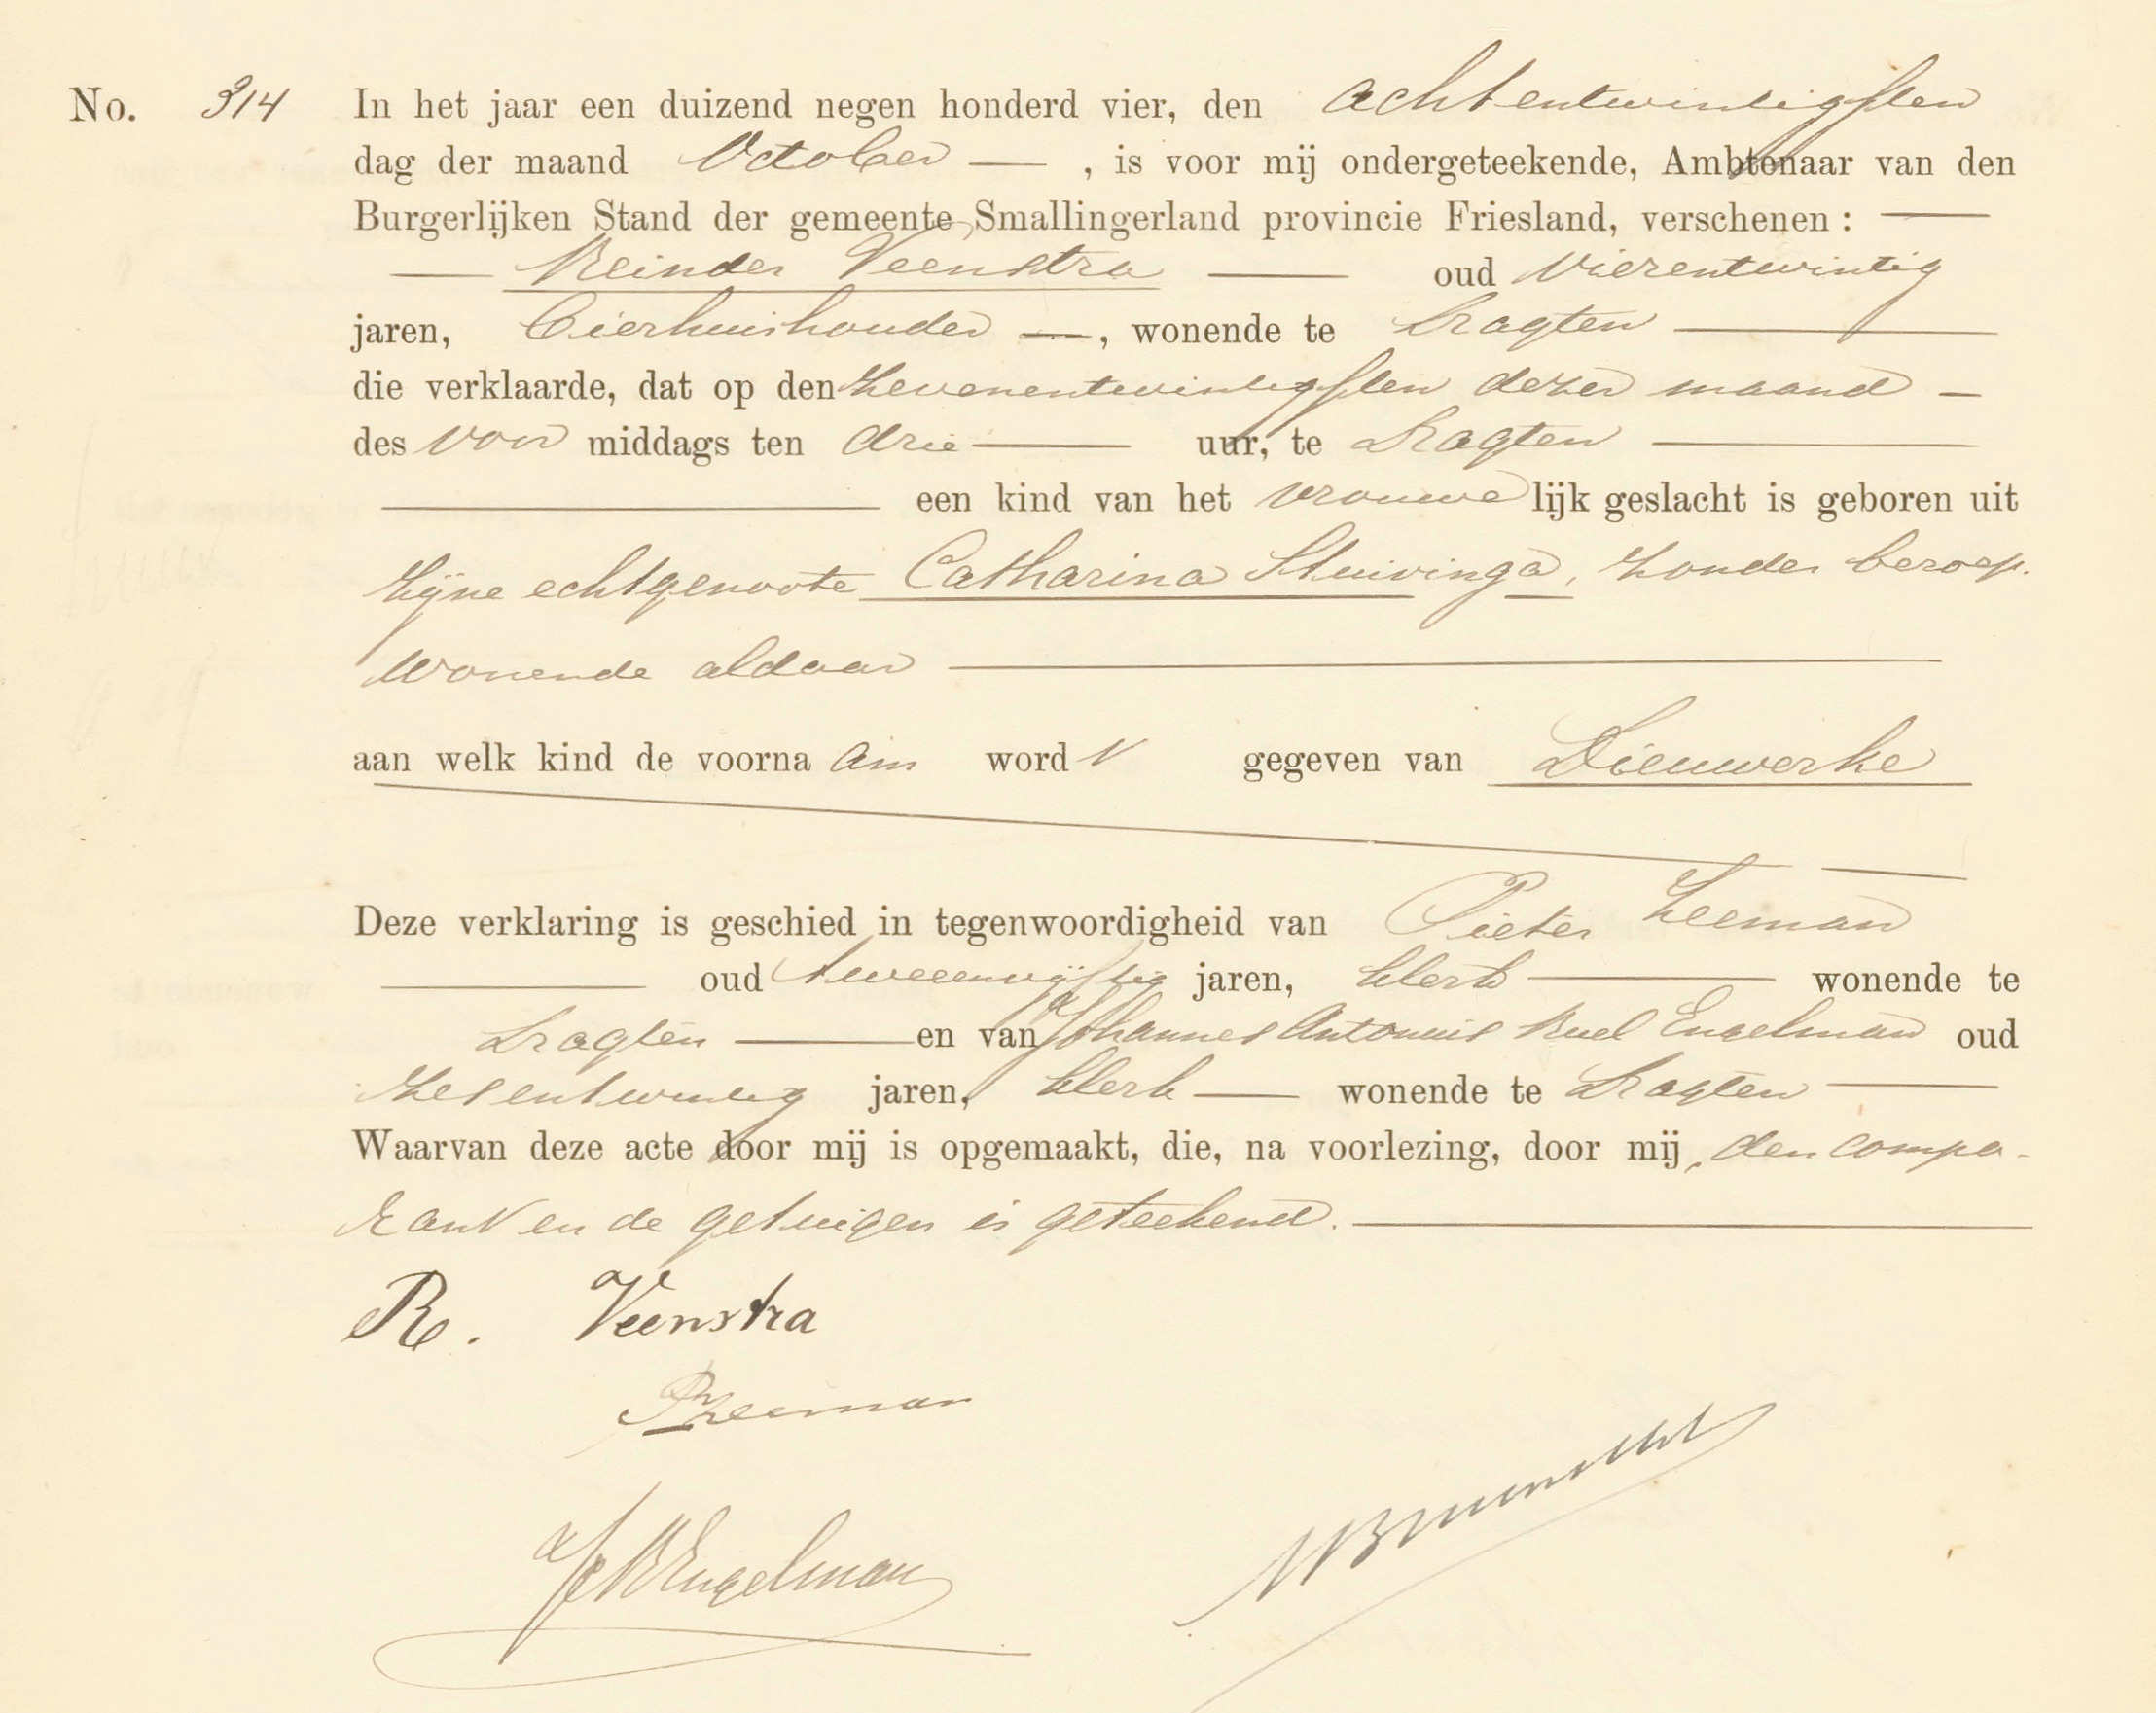 No. 314 In het jaar een duizend negen honderd vier, den achtentwintigsten
dag der maand October —, is voor mij ondergeteekende, Ambtenaar van den
Burgerlijken Stand der gemeente Smallingerland provincie Friesland, verschenen : —
— Reinder Veenstra — oud vierentwintig
jaren, bierhuishouder —, wonende te Dragten —
die verklaarde, dat op den zevenentwintigsten dezer maand —
des voor middags ten drie — uur, te Dragten —
— een kind van het vrouwe lijk geslacht is geboren uit
zijne echtgenoote Catharina Stuivinga, zonder beroep.
wonende aldaar —
aan welk kind de voorna am word t gegeven van Dieuwerke
Deze verklaring is geschied in tegenwoordigheid van Pieter Zeeman
— oud tweeenvijftig jaren, klerk — wonende te
Dragten — en van Johannes Antonius Ruel Engelman oud
zesentwintig jaren, klerk — wonende te Dragten —
Waarvan deze acte door mij is opgemaakt, die, na voorlezing, door mij, den compa-
rant en de getuigen is geteekend. —
R. Veenstra
PZeeman
Engelman